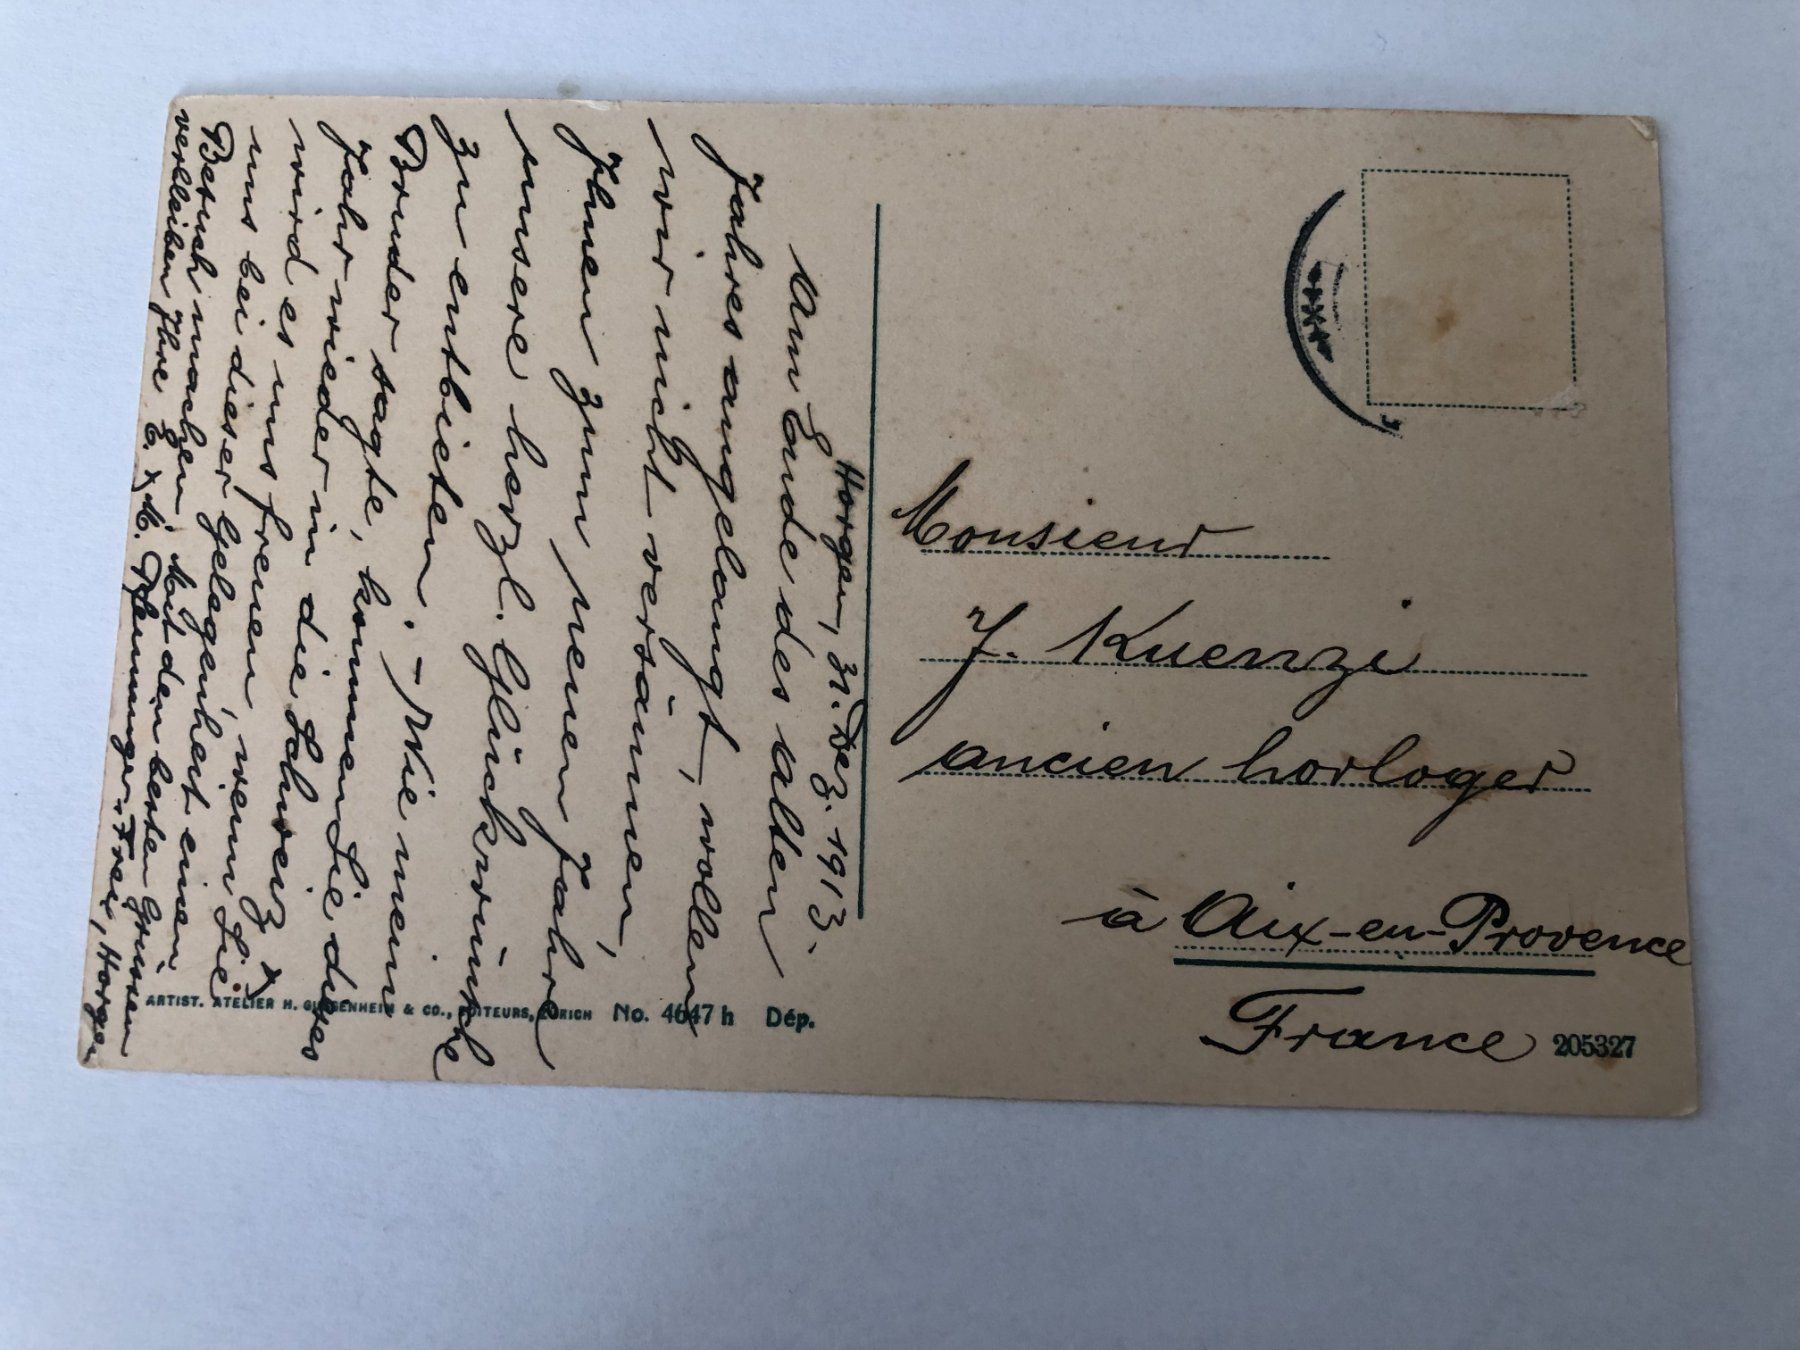 Horgen, 31. Dez. 1913.
Am Ende des alten
Jahres angelangt, wollen
wir nicht versäumen,
Ihnen zum neuen Jahre
unsere herzl. Glückwünsche
zu entbieten. - Wie mein
Bruder sagte, kommen Sie dieses
Jahr wieder in die Schweiz &
wird es uns freuen, wenn Sie
uns bei dieser Gelegenheit einen
Besuch machen. Mit den besten Grüssen
verbleiben Ihre E. & M. Pfenninger-Frei, Horgen
Monsieur
J. Kuenzi
ancien horloger
à Aix-en-Provence
France
ARTIST. ATELIER H. GUGGENHEIM & CO., EDITEURS, ZÜRICH No. 4647 h Dép.
205327